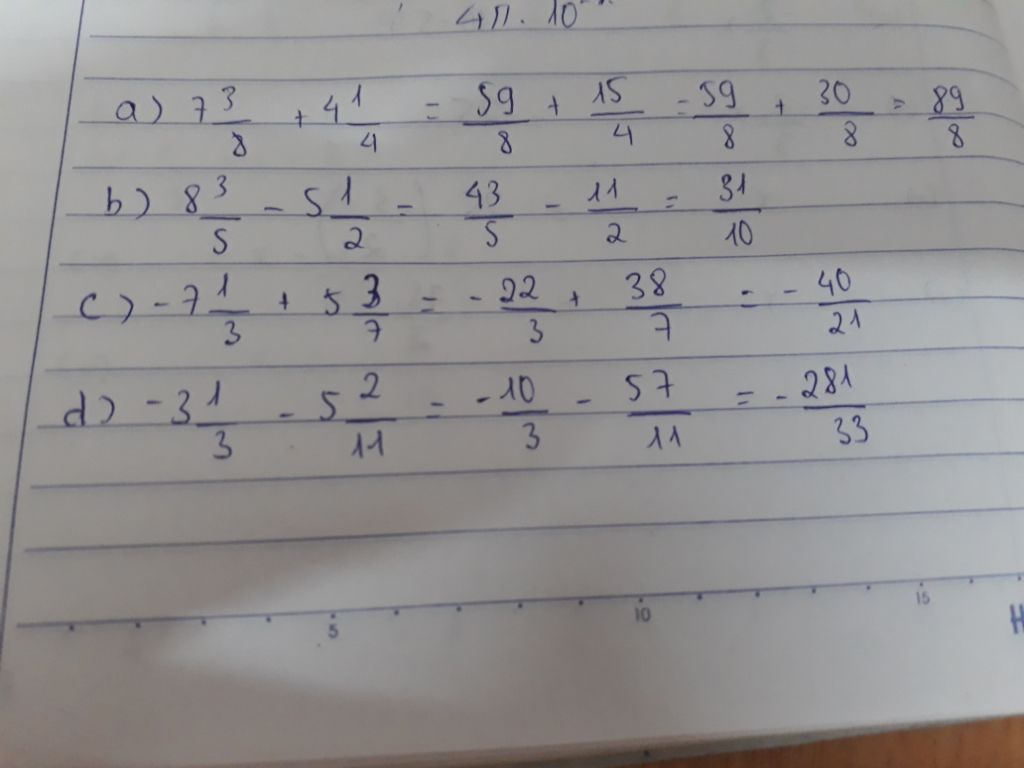 4π. 10
a) 7 3/8 + 4 1/4 = 59/8 + 15/4 = 59/8 + 30/8 = 89/8
b) 8 3/5 - 5 1/2 = 43/5 - 11/2 = 31/10
c) -7 1/3 + 5 3/7 = -22/3 + 38/7 = -40/21
d) -3 1/3 - 5 2/11 = -10/3 - 57/11 = -281/33
5 10 15
H